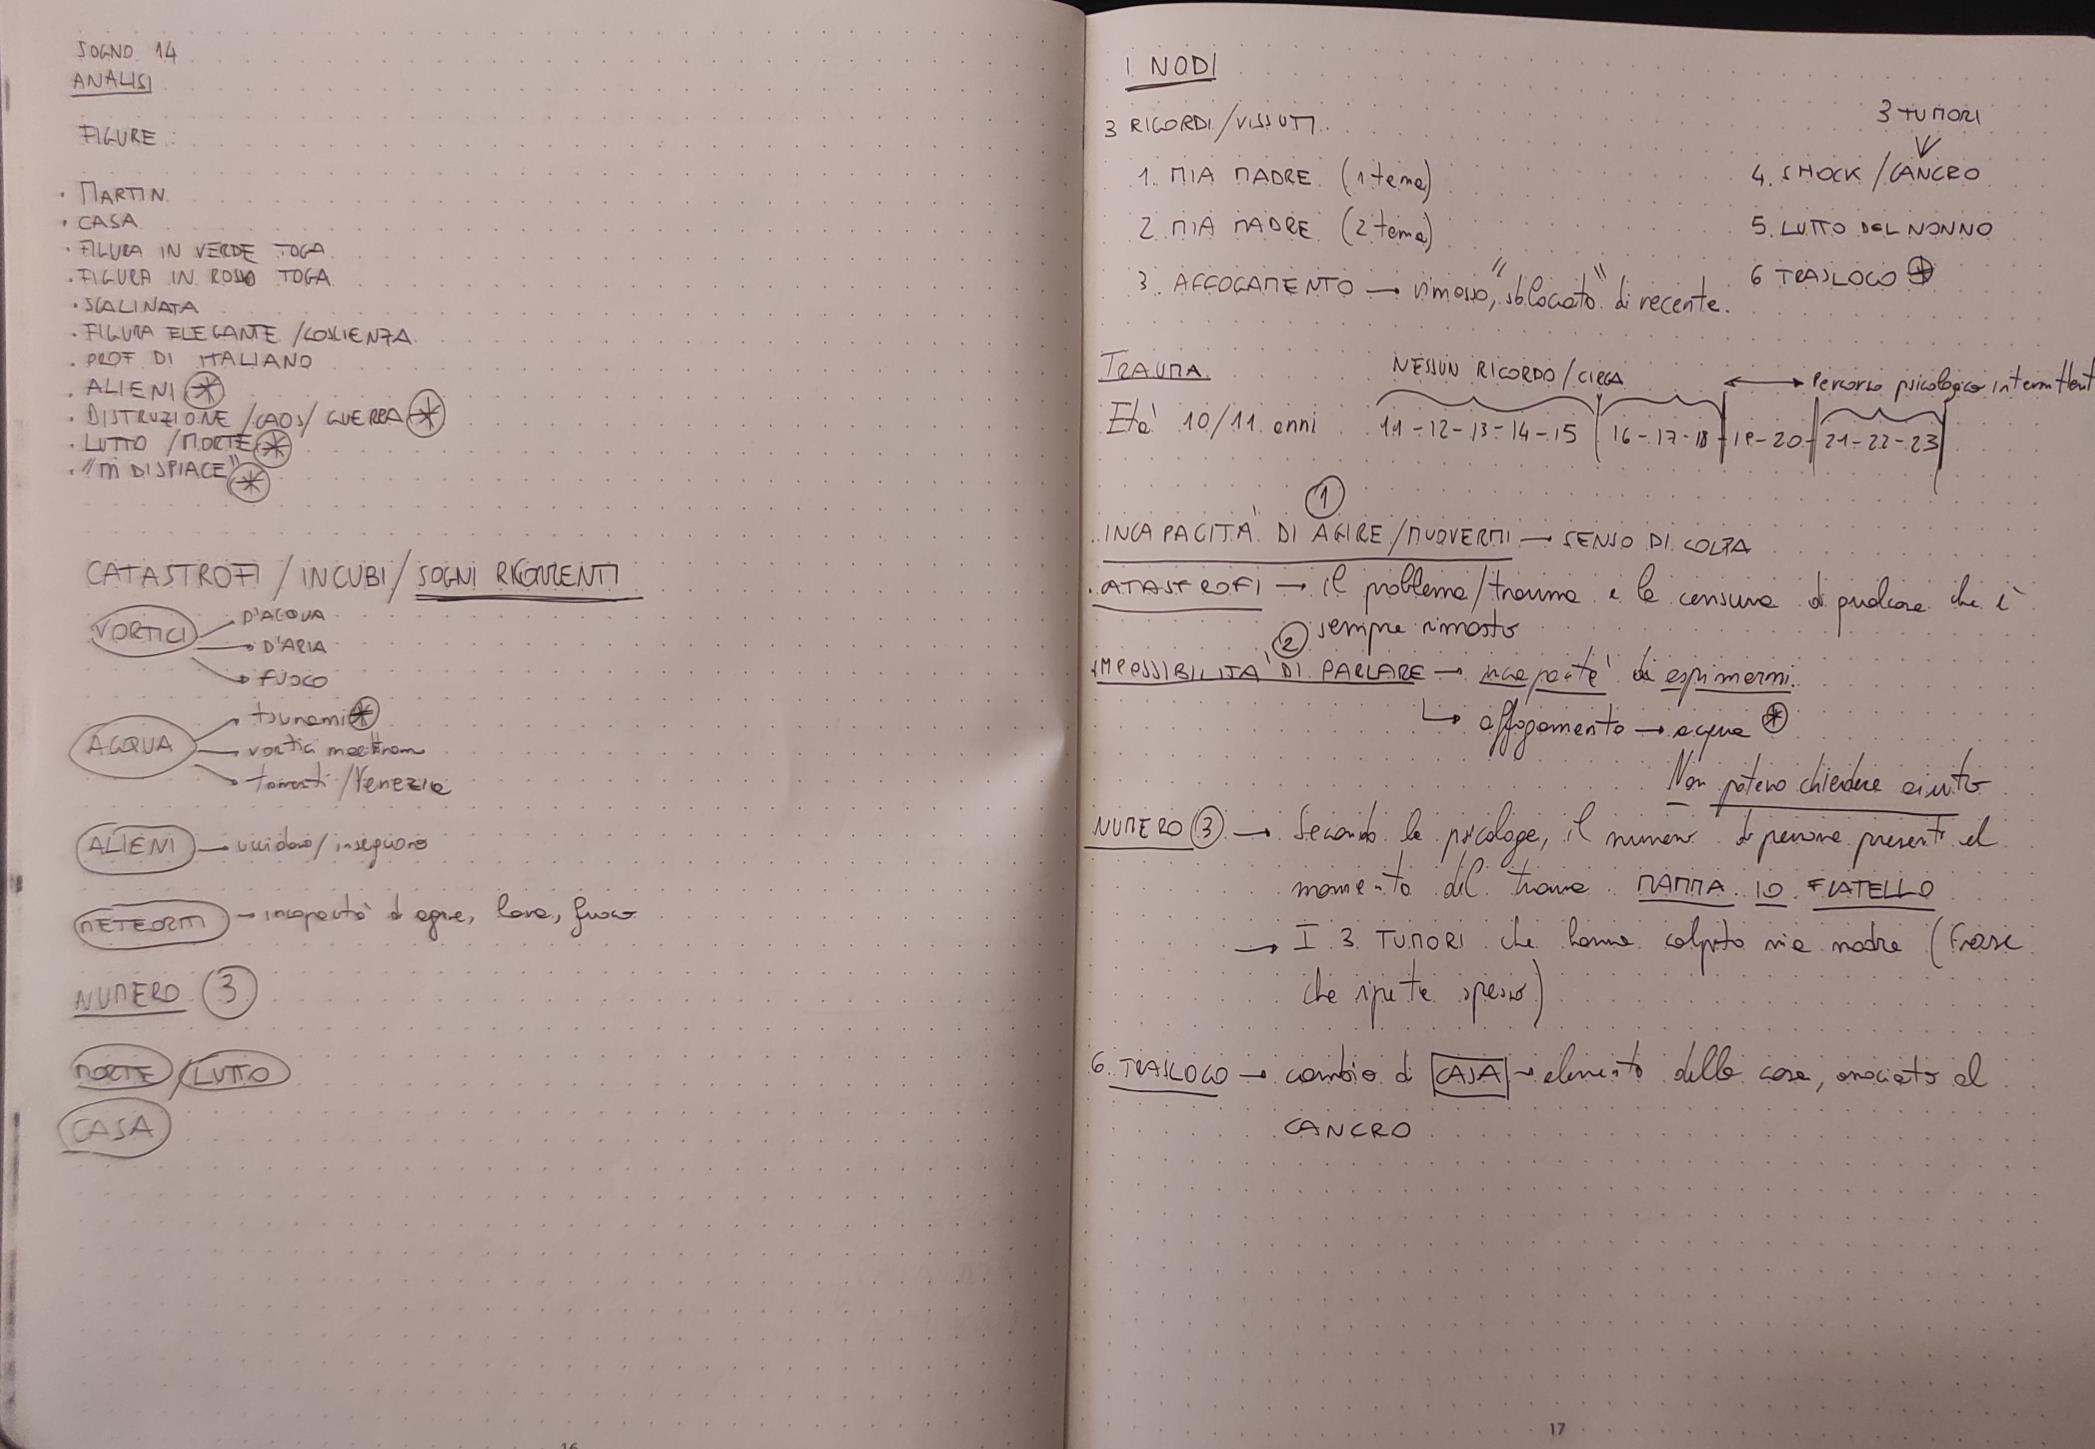 SOGNO 14
ANALISI
FIGURE:
• MARTIN
• CASA
• FIGURA IN VERDE TOGA
• FIGURA IN ROSSO TOGA
• SCALINATA
• FIGURA ELEGANTE / COSCIENZA
• PROF DI ITALIANO
• ALIENI *
• DISTRUZIONE / CAOS / GUERRA *
• LUTTO / MORTE *
• "MI DISPIACE" *
CATASTROFI / INCUBI / SOGNI RICORRENTI
VORTICI → D'ACQUA
→ D'ARIA
→ FUOCO
ACQUA → tsunami *
→ vortici maelstrom
→ torrenti / Venezia
ALIENI → uccidono / inseguono
METEORITI → incapacità di agire, lava, fuoco
NUMERO 3
MORTE / LUTTO
CASA
16
I NODI
3 RICORDI / VISSUTI
1. MIA MADRE (1 tema)
2. MIA MADRE (2 tema)
3. AFFOGAMENTO → rimosso, "sbloccato" di recente.
3 TUMORI
4. SHOCK / CANCRO
5. LUTTO DEL NONNO
6 TRASLOCO *
TRAUMA
NESSUN RICORDO / CIRCA
↔ Percorso psicologico intermittent
Età 10/11 anni 11-12-13-14-15 16-17-18 19-20 21-22-23
1
• INCAPACITÀ DI AGIRE / MUOVERMI → SENSO DI COLPA
• CATASTROFI → il problema / trauma e la censura di qualcosa che è
sempre rimosto
2
• IMPOSSIBILITÀ DI PARLARE → incapacità di esprimermi.
↳ affogamento → acqua *
Non potevo chiedere aiuto
NUMERO 3 → Secondo la psicologa, il numero di persone presenti al
momento del trauma MAMMA IO FRATELLO
→ I 3 TUMORI che hanno colpito mia madre (frase
che ripete spesso)
6. TRASLOCO → cambio di CASA → elemento della casa, associato al
CANCRO
17